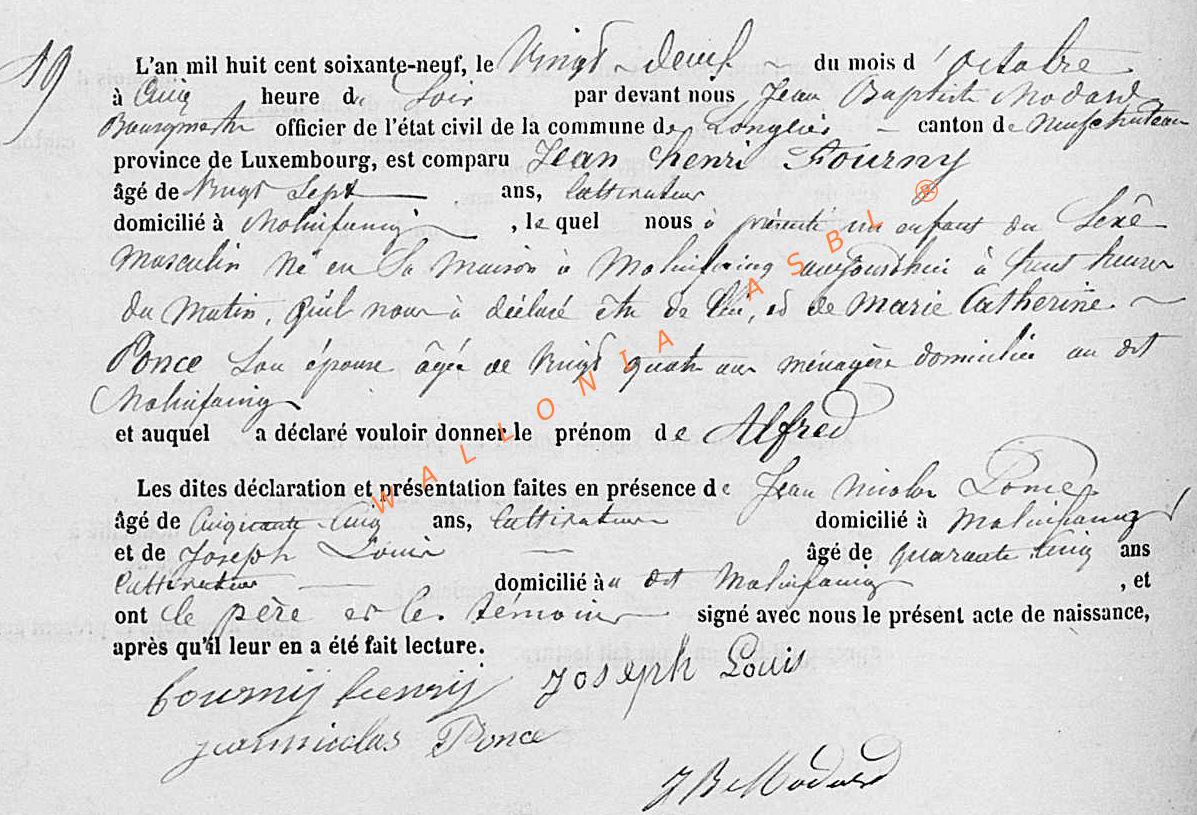 19
L'an mil huit cent soixante-neuf, le Vingt-deux du mois d'octobre
à Cinq heure de Soir par devant nous Jean Baptiste Modard
Bourgmestre officier de l'état civil de la commune de Longlier canton de Neufchateau
province de Luxembourg, est comparu Jean henri Fourny
âgé de Vingt Sept ans, Cultivateur
domicilié à Molinfaing, lequel nous à présenté un enfant du Sexê
Masculin Né en Sa Maison à Molinfaing aujourdhui à huit heures
du Matin, qu'il nous à déclaré être de lui, et de Marie Catherine
Ponce Son épouse âgée de Vingt quatre ans ménagère domiciliée au dit
Molinfaing
et auquel a déclaré vouloir donner le prénom de Alfred
Les dites déclaration et présentation faites en présence de Jean Nicolas Ponce
âgé de Cinquante-Cinq ans, Cultivateur domicilié à Molinfaing
et de Joseph Louis âgé de quarante Cinq ans
Cultivateur domicilié au dit Molinfaing, et
ont le père et les témoins signé avec nous le présent acte de naissance,
après qu'il leur en a été fait lecture.
fournij henrij Joseph Louis
jean nicolas Ponce
J B Modard
WALLONIA ASBL ®